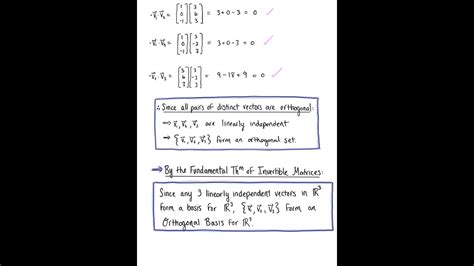 · v⃗₁·v⃗₂ = [1 0 -1] [3 6 3] = 3+0-3 = 0 ✓
· v⃗₁·v⃗₃ = [1 0 -1] [3 -3 3] = 3+0-3 = 0 ✓
· v⃗₂·v⃗₃ = [3 6 3] [3 -3 3] = 9-18+9 = 0 ✓
∴ Since all pairs of distinct vectors are orthogonal:
⇒ v⃗₁, v⃗₂, v⃗₃ are linearly independent
⇒ {v⃗₁, v⃗₂, v⃗₃} form an orthogonal set.
⇒ By the Fundamental Thᵐ of Invertible Matrices:
Since any 3 linearly independent vectors in ℝ³
form a basis for ℝ³, {v⃗₁, v⃗₂, v⃗₃} form an
Orthogonal Basis for ℝ³.